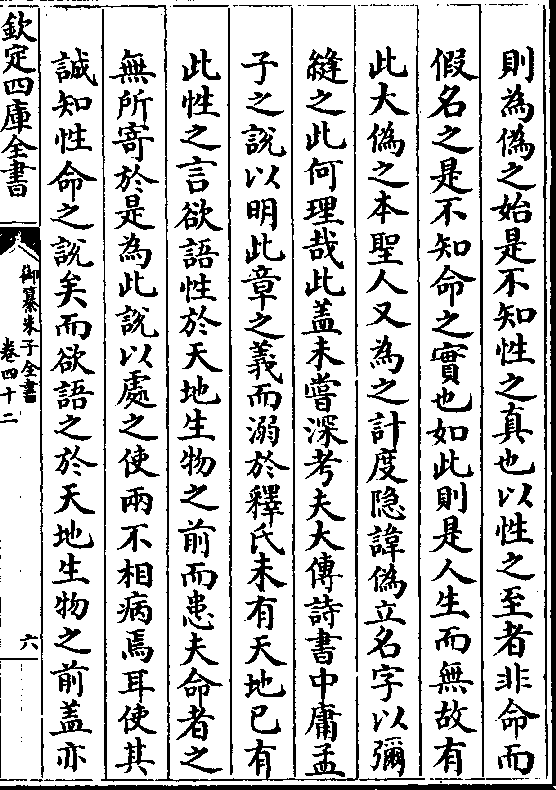 則為偽之始是不知性之真也以性之至者非命而
假名之是不知命之實也如此則是人生而無故有
此大偽之本聖人又為之計度隐諱偽立名字以彌
縫之此何理哉此盖未嘗深考夫大傳詩書中庸孟
子之說以明此章之義而溺於釋氏未有天地已有
此性之言欲語性於天地生物之前而患夫命者之
無所寄於是為此說以處之使兩不相病焉耳使其
誠知性命之說矣而欲語之於天地生物之前盖亦
欽定四庫全書
御纂朱子全書
卷四十二
六